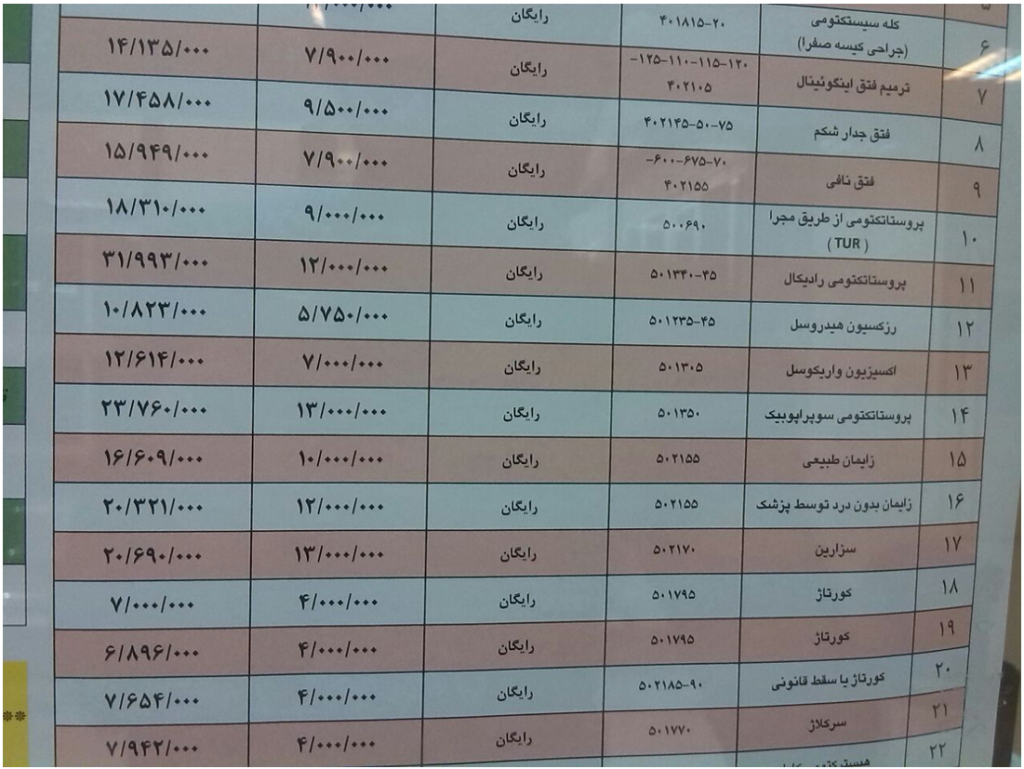 ۶ کله سیستکتومی ۲۰-۴۰۱۸۱۵ رایگان
(جراحی کیسه صفرا)
۷ ترمیم فتق اینگوئینال ۱۲۰-۱۱۵-۱۱۰-۱۲۵- رایگان ۷/۹۰۰/۰۰۰ ۱۴/۱۳۵/۰۰۰
۴۰۲۱۰۵
۸ فتق جدار شکم ۷۵-۵۰-۴۰۲۱۴۵ رایگان ۹/۵۰۰/۰۰۰ ۱۷/۴۵۸/۰۰۰
۹ فتق نافی ۷۰-۶۷۵-۶۰۰- رایگان ۷/۹۰۰/۰۰۰ ۱۵/۹۴۹/۰۰۰
۴۰۲۱۵۵
۱۰ پروستاتکتومی از طریق مجرا ۵۰۰۶۹۰ رایگان ۹/۰۰۰/۰۰۰ ۱۸/۳۱۰/۰۰۰
(TUR)
۱۱ پروستاتکتومی رادیکال ۴۵-۵۰۱۳۴۰ رایگان ۱۲/۰۰۰/۰۰۰ ۳۱/۹۹۳/۰۰۰
۱۲ رزکسیون هیدروسل ۴۵-۵۰۱۲۳۵ رایگان ۵/۷۵۰/۰۰۰ ۱۰/۸۲۳/۰۰۰
۱۳ اکسیزیون واریکوسل ۵۰۱۳۰۵ رایگان ۷/۰۰۰/۰۰۰ ۱۲/۶۱۴/۰۰۰
۱۴ پروستاتکتومی سوپراپوبیک ۵۰۱۳۵۰ رایگان ۱۳/۰۰۰/۰۰۰ ۲۳/۷۶۰/۰۰۰
۱۵ زایمان طبیعی ۵۰۲۱۵۵ رایگان ۱۰/۰۰۰/۰۰۰ ۱۶/۶۰۹/۰۰۰
۱۶ زایمان بدون درد توسط پزشک ۵۰۲۱۵۵ رایگان ۱۲/۰۰۰/۰۰۰ ۲۰/۳۲۱/۰۰۰
۱۷ سزارین ۵۰۲۱۷۰ رایگان ۱۳/۰۰۰/۰۰۰ ۲۰/۶۹۰/۰۰۰
۱۸ کورتاژ ۵۰۱۷۹۵ رایگان ۴/۰۰۰/۰۰۰ ۷/۰۰۰/۰۰۰
۱۹ کورتاژ ۵۰۱۷۹۵ رایگان ۴/۰۰۰/۰۰۰ ۶/۸۹۶/۰۰۰
۲۰ کورتاژ یا سقط قانونی ۹۰-۵۰۲۱۸۵ رایگان ۴/۰۰۰/۰۰۰ ۷/۶۵۴/۰۰۰
۲۱ سرکلاژ ۵۰۱۷۷۰ رایگان ۴/۰۰۰/۰۰۰ ۷/۹۴۲/۰۰۰
۲۲